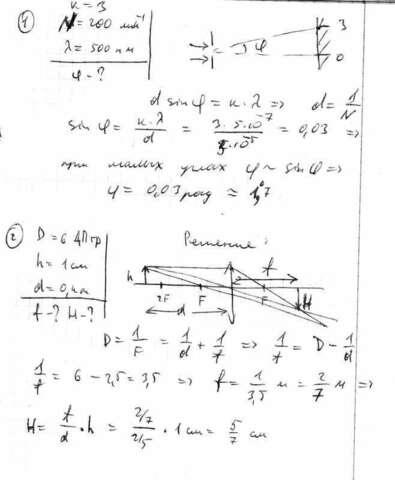 ① к = 3
N = 200 мм⁻¹
λ = 500 нм
φ - ?
φ
3
0
d sin φ = к·λ => d = 1/N
sin φ = к·λ/d = 3·5·10⁻⁷/5·10⁻⁶ = 0,03 =>
при малых углах φ ~ sin φ =>
φ = 0,03 рад ≈ 1,7°
② D = 6 дптр
h = 1 см
d = 0,4 м
f - ? H - ?
Решение:
h 2F F d f F H
D = 1/F = 1/d + 1/f => 1/f = D - 1/d
1/f = 6 - 2,5 = 3,5 => f = 1/3,5 м = 2/7 м =>
H = f/d · h = 2/7 / 2/5 · 1 см = 5/7 см